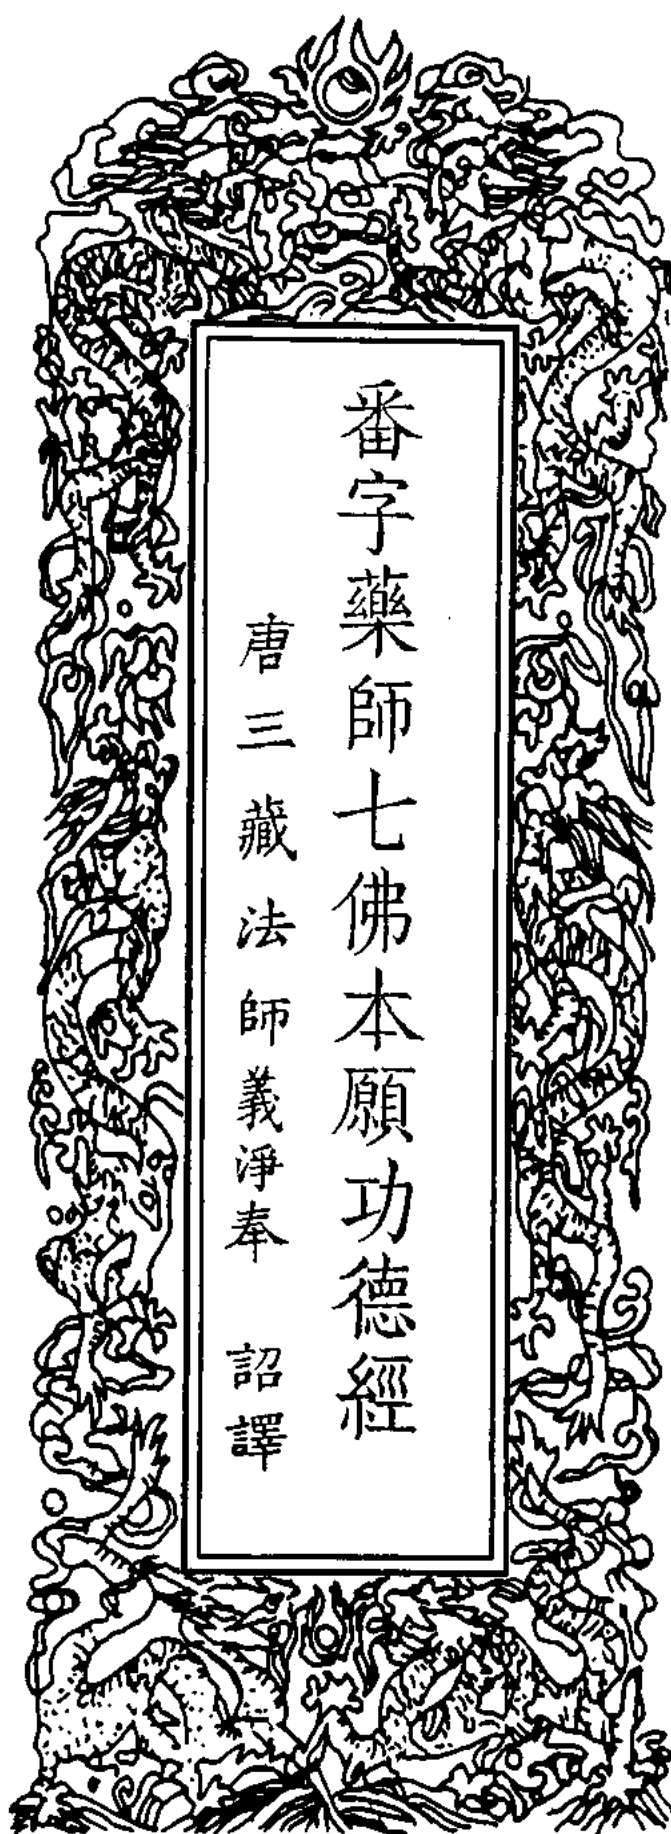 番字藥師七佛本願功德經
唐三藏法師義淨奉 詔譯